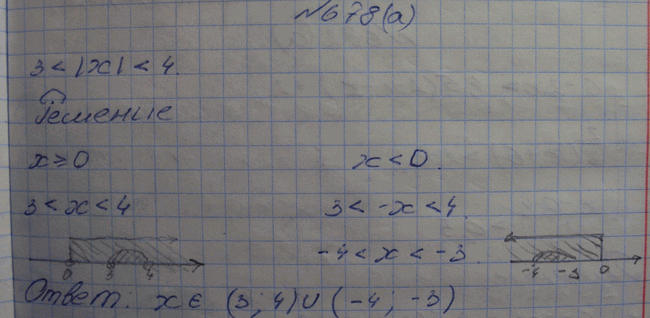 №678(а)
3 < |x| < 4.
Решение
x ≥ 0 x < 0.
3 < x < 4 3 < -x < 4.
-4 < x < -3.
0 3 4 -4 -3 0
Ответ: x ∈ (3; 4) ∪ (-4; -3)